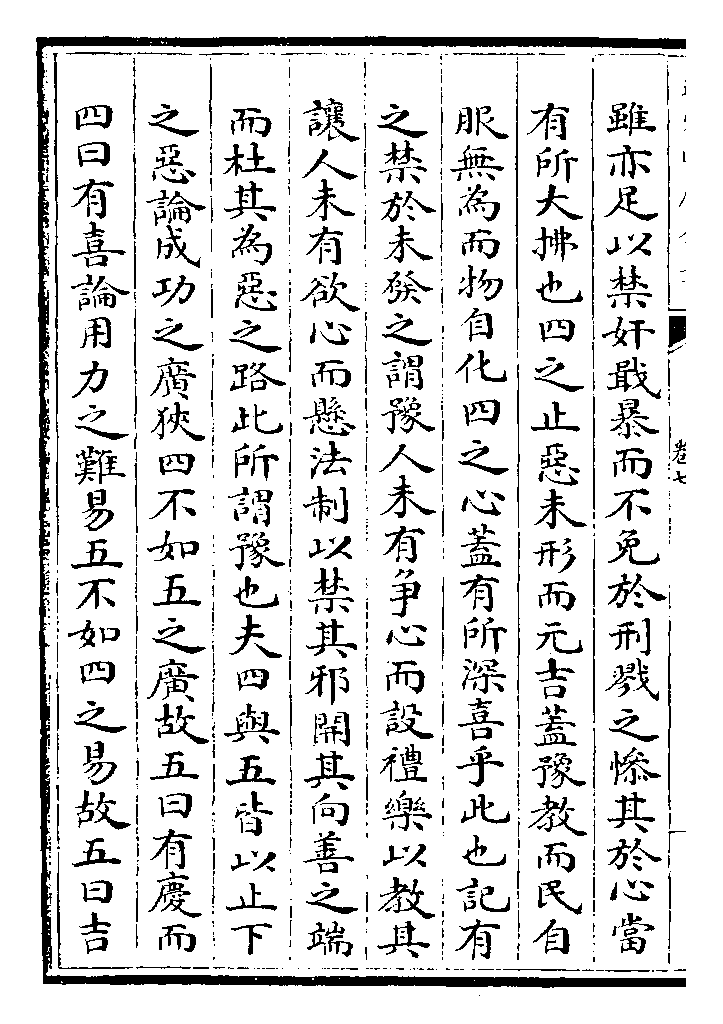 雖亦足以禁奸戢暴而不免於刑戮之慘其於心當
有所大拂也四之止惡未形而元吉蓋豫教而民自
服無為而物自化四之心蓋有所深喜乎此也記有
之禁於未發之謂豫人未有爭心而設禮樂以教其
讓人未有欲心而懸法制以禁其邪開其向善之端
而杜其為惡之路此所謂豫也夫四與五皆以止下
之惡論成功之廣狹四不如五之廣故五曰有慶而
四曰有喜論用力之難易五不如四之易故五曰吉
卷七